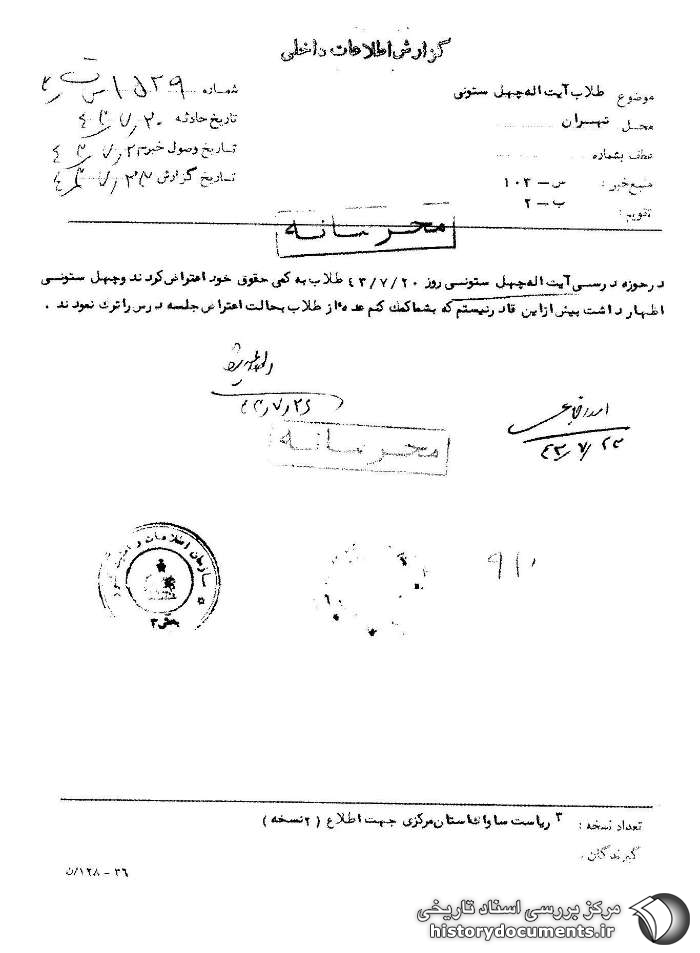 گزارش اطلاعات داخلی
موضوع طلاب آیت اله چهل ستونی
محل تهران
عطف بشماره
منبع خبر : س – ۱۰۳
تقویم : ب – ۲
شماره ۱۵۲۹
تاریخ حادثه ۴۳/۷/۲۰
تاریخ وصول خبر ۴۳/۷/۲۲
تاریخ گزارش
محرمانه
در حوزه درسی آیت اله چهل ستونی روز ۴۳/۷/۲۰ طلاب به کمی حقوق خود اعتراض کردند و چهل ستونی
اظهار داشت بیش از این قادر نیستم که بشما کمک کنم عده ای از طلاب بحالت اعتراض جلسه درس را ترک نمودند .
۴۳/۷/۲۶
۴۳/۷/۲۳
محرمانه
سازمان اطلاعات و امنیت کشور
بخش ۳
۹۱۰
تعداد نسخه : ۳ ریاست ساواک استان مرکزی جهت اطلاع ( ۲ نسخه )
گیرندگان .
۳۶ – ۱۲۸/ن
مرکز بررسی اسناد تاریخی
historydocuments.ir